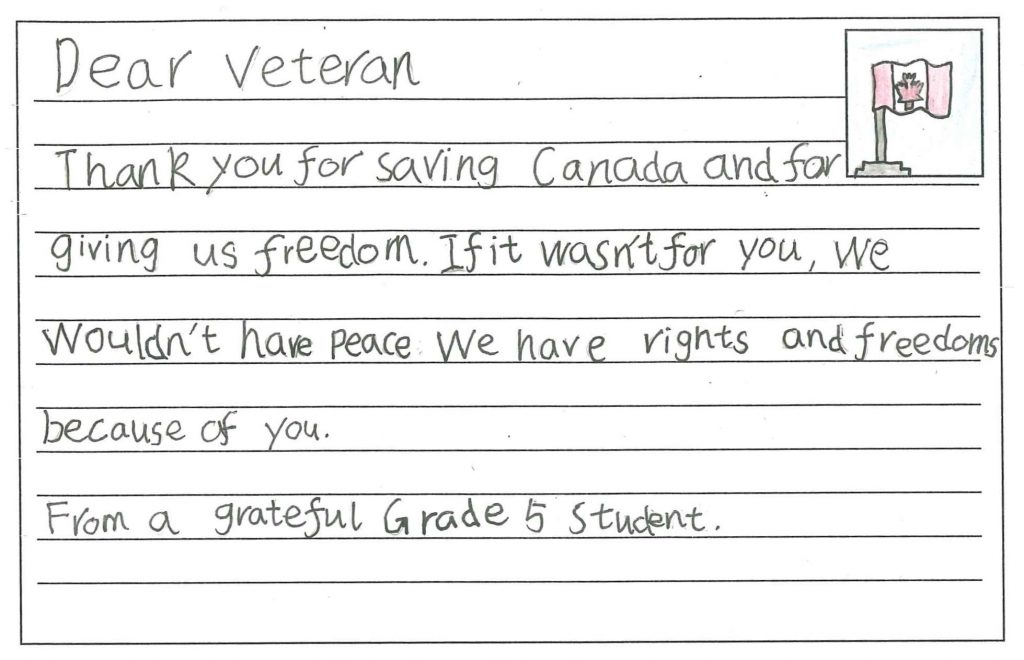 Dear Veteran
Thank you for saving Canada and for
giving us freedom. If it wasn't for you, we
wouldn't have peace. We have rights and freedoms
because of you.
From a grateful Grade 5 Student.